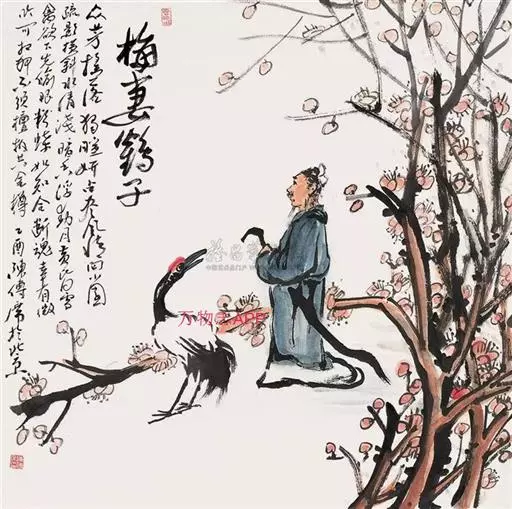 梅妻鶴子
众芳摇落獨暄妍占尽風情向小園
疏影横斜水清浅暗香浮動月黄昏霜
禽欲下先偷眼粉蝶如知合断魂幸有微
吟可相狎不須檀板共金樽 乙酉陳傳席於北京
万物 APP